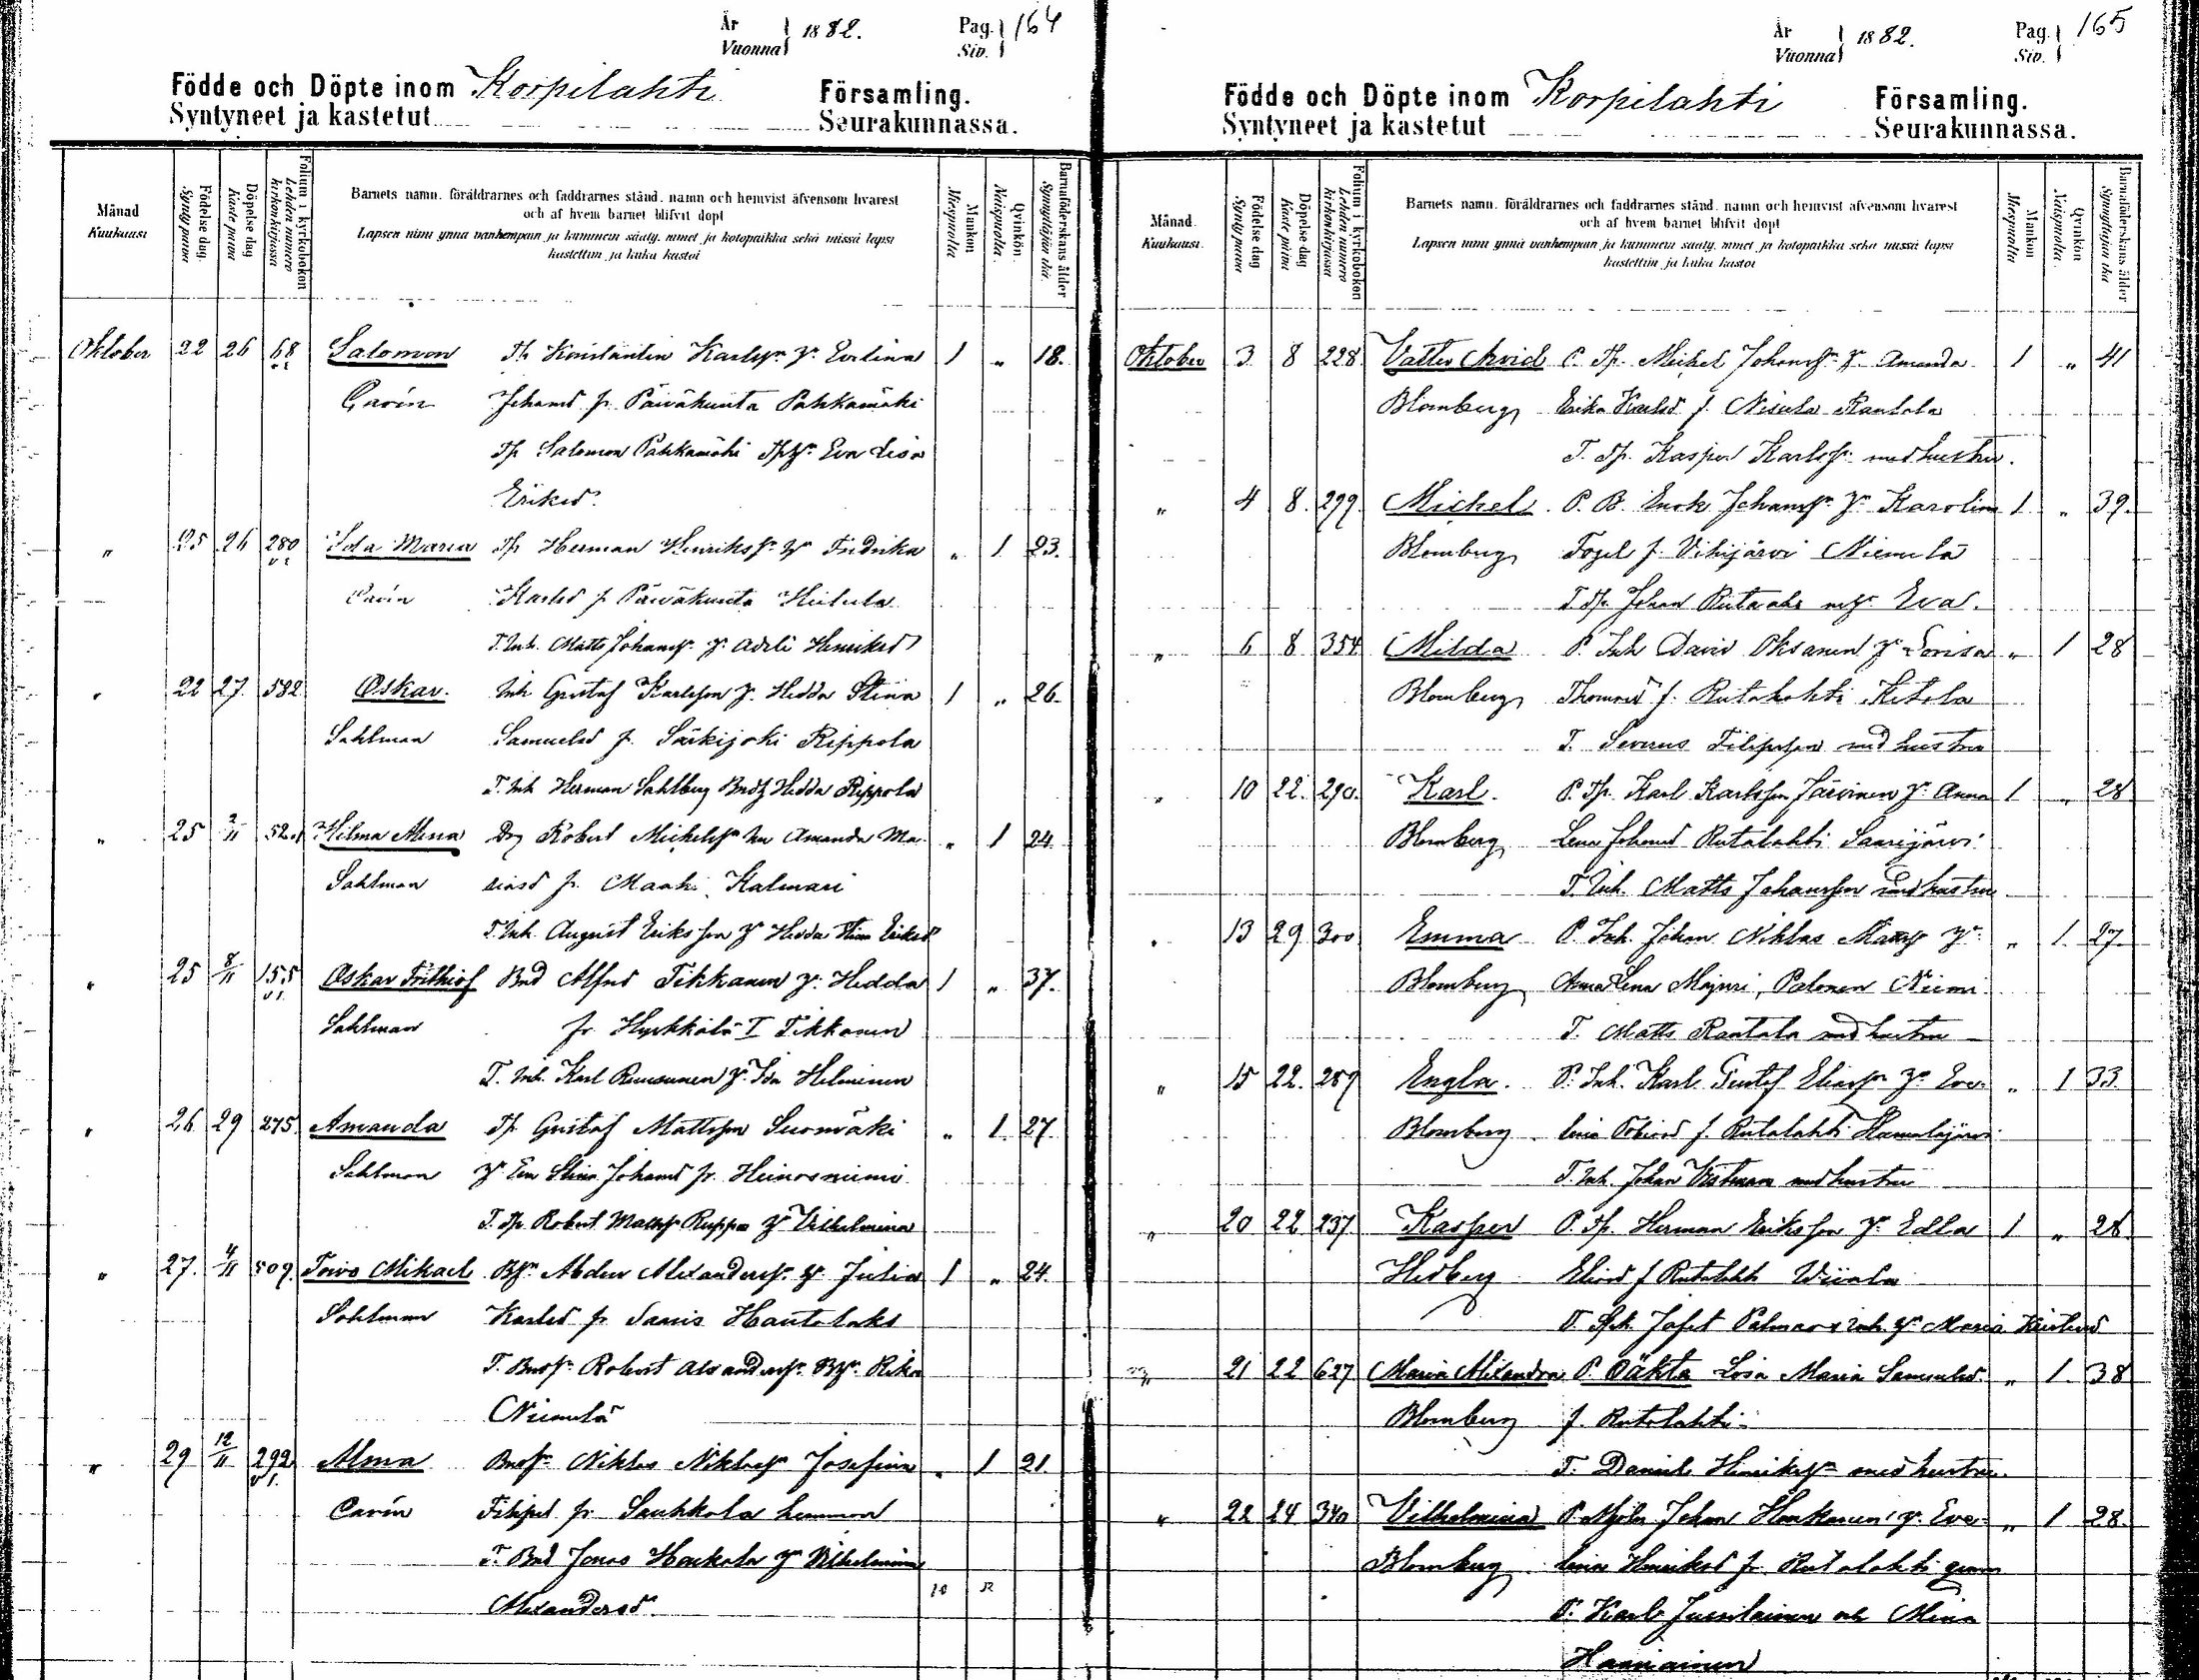 År
Vuonna
1882.
Pag.
Siv.
164
Födde och Döpte inom Korpilahti Församling.
Syntyneet ja kastetut Seurakunnassa.
Månad
Kuukausi
Födelse dag.
Synty paiva
Döpelse dag
Kaste paiva
Folium i kyrkoboken
Lehden numero kirkonkirjassa
Barnets namn, föräldrarnes och faddrarnes stånd, namn och hemvist äfvensom hvarest
och af hvem barnet blifvit döpt
Lapsen nimi ynnä vanhempain ja kummein sääty, nimet ja kotopaikka sekä missä lapsi
kastettiin ja kuka kastoi
Mankön
Miespuolta
Qvinkön
Naispuolta.
Barnaföderskans ålder
Synnyttäjän ikä.
Oktober 22 26 68 Salomon Th Konstantin Karlss. h. Evelina 1 " 18.
Carén Johansd fr. Päiväkunta Pahkamäki
Tp Salomon Pahkamäki Eva Lisa
Eriksd.
" 25 26 280 Ida Maria Tp Herman Henrikss. h. Fredrika " 1 23.
Carén Karlsd fr Päiväkunta Heikela
T. Inh. Matts Johanss. h. Adeli Henriksd
" 22 27. 582 Oskar. Inh Gustaf Karlsson h. Hedda Stina 1 " 26.
Sahlman Samuelsd fr. Särkijoki Rippola
T. Inh Herman Sahlberg Hedda Rippola
" 25 2/11 520 Hilma Alma Robert Michelss Amanda Ma- " 1 24
Sahlman riasd fr. Maaki Kalmari
T. Inh. August Eriksson h Hedda Stina Eriksd
" 25 8/11 155 Oskar Frithiof Bnd Alfred Tikkanen h. Hedda 1 " 37.
Sahlman fr Hyrkkälä I Tikkanen
T. Inh. Karl Ruusunen h. Ida Helminen
" 26 29 275. Amanda Tp Gustaf Mattsson Suomäki " 1 27.
Sahlman h Eva Stina Johansd fr. Heinosniemi
T. Tp. Robert Matss. Ruppa h Vilhelmina
" 27. 4/11 509. Toivo Mikael Alexanderss. h. Julia 1 " 24.
Sahlman Karlsd fr Saaris Hautalaks
T. Robert Alexanderss. Rika
Niemelä
" 29 12/11 292 Alma Niklas Niklass. Josefina " 1 21.
Carén Filipsd fr. Saukkola hemman
T. Bnd Jonas Haukola h Vilhelmina
Alexandersd.
10 12
År
Vuonna
1882.
Pag.
Siv.
165
Födde och Döpte inom Korpilahti Församling.
Syntyneet ja kastetut Seurakunnassa.
Månad.
Kuukausi.
Födelse dag
Synty paiva
Döpelse dag
Kaste päivä
Folium i kyrkoboken
Lehden numero kirkonkirjassa
Barnets namn, föräldrarnes och faddrarnes stånd, namn och hemvist äfvensom hvarest
och af hvem barnet blifvit döpt
Lapsen nimi ynnä vanhempain ja kummein sääty, nimet ja kotopaikka sekä missä lapsi
kastettiin ja kuka kastoi
Mankön
Miespuolta
Qvinkön
Naispuolta.
Barnaföderskans ålder
Synnyttäjän ikä
Oktober 3 8 228. Valter Arvid P. Tp. Michel Johanss. h. Amanda 1 " 41
Blomberg Erika Karlsd f. Nisula Rantala
T. Tp. Kasper Karlss. med hustru.
" 4 8. 299. Michel P. B. Enok Johanss. h. Karolin 1 " 39.
Blomberg Fogel f. Vihijärvi Niemelä
T. Tp. Johan Rutaaho m. h. Eva.
" 6 8 354 Milda P. Inh David Oksanen h. Lovisa " 1 28
Blomberg Thomasd f. Rutalahti Ketola
T. Severus Filipsson med hustru
" 10 22. 290. Karl. P. Tp. Karl Karlsson Järvinen h. Anna 1 " 28
Blomberg Lena Johansd Rutalahti Saarijärvi
T. Inh. Matts Johansson med hustru
" 13 29 300 Emma P. Inh. Johan Niklas h. " 1. 27.
Blomberg Anna Lena Majuri, Palonen Niemi
T. Matts Rantala med hustru
" 15 22. 289 Engla. P. Inh. Karl Gustaf Eliass. h. Eve- " 1 33.
Blomberg lina f. Rutalahti
T. Inh. Johan Vestman med hustru
" 20 22 237. Kasper P. Tp. Herman Eriksson h. Edla 1 " 28
Hedberg Eliasd f Rutalahti
T. Josef Palmar h. Maria
" 21 22 627 Maria Alexandra P. Päkta Lovisa Maria Samuelsd. " 1. 38
Blomberg f. Rutalahti
T. Daniel Henrikss. med hustru.
" 22 24 340 Vilhelmina P. Johan Honkanen h. Eve- " 1 28.
Blomberg lina Henriksd fr Rutalahti
T. Karl Jussilainen och Mina
Hänninen